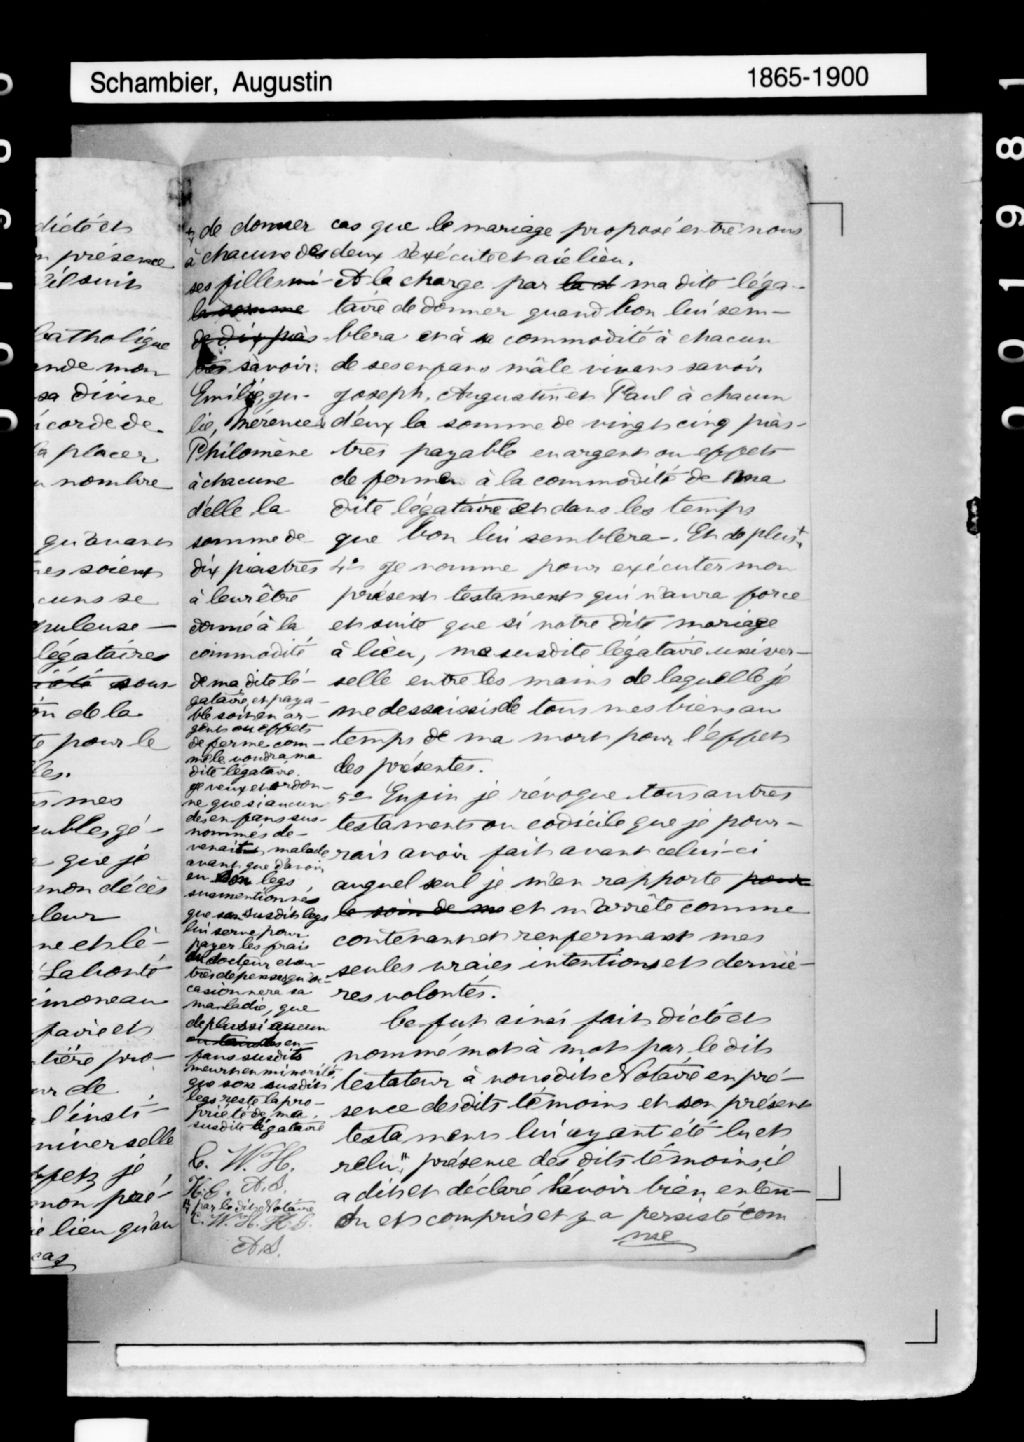 Schambier, Augustin
1865-1900
001981
dicté et
présence
il suit
Catholique
ande mon
sa divine
icorde de
la placer
nombre
qu'avant
es soient
cuns se
légataires
sous
on de la
pour le
les.
mes
que je
mon décès
leur
ne et lé-
La bonté
imoneau
favie et
tière pro-
ur de
l'insti-
niverselle
je
lieu qu'au
cas
de donner
à chacune des
ses filles mi-
la somme
de dix pias-
tres savoir:
Emilie, Ju-
lie, Mérence &
Philomène
à chacune
d'elle la
somme de
dix piastres
à leur être
donné à la
commodité
de ma dite lé-
gataire, et paya-
ble soit en ar-
gent ou effets
de ferme com-
me le voudra ma
dite légataire.
Je veux et ordon-
ne que si aucun
des enfans sus-
nommés de-
venait malade
avant que d'avoir
eu son legs
susmentionnés
que son susdit legs
lui serve pour
payer les frais
du docteur et au-
tres dépenses qu'oc-
casionnera sa
maladie, que
de plus si aucun
en-
fans susdits
meurt en minorité,
que son susdit
legs reste la pro-
priété de ma
susdite légataire
C. W. H.
H.G. A.S.
par le dit Notaire
C. W. H. H.G.
A.S.
cas que le mariage proposé entre nous
deux s'exécute et aie lieu.
A la charge par la d ma dite léga-
taire de donner quand bon lui sem-
blera et à sa commodité à chacun
de ses enfans mâle vivans savoir
Joseph, Augustin et Paul à chacun
d'eux la somme de vingt cinq pias-
tres payable en argent ou effets
de ferme à la commodité de ma
dite légataire et dans les temps
que bon lui semblera. Et de plus
4º Je nomme pour exécuter mon
présent testament qui n'aura force
et suite que si notre dite mariage
à lieu, ma susdite légataire univer-
selle entre les mains de laquelle je
me dessaisis de tous mes biens au
temps de ma mort pour l'effet
des présentes.
5º Enfin je révoque tous autres
testaments ou codicile que je pour-
rais avoir fait avant celui-ci
auquel seul je m'en rapporte pour
le soin de me et m'arrête comme
contenant et renfermant mes
seules vraies intentions et derniè-
res volontés.
Ce fut ainsi fait dicté et
nommé mot à mot par le dit
testateur à nous dit Notaire en pré-
sence des dits témoins et son présent
testament lui ayant été lu et
relu, présence des dits témoins, il
a dit et déclaré l'avoir bien enten-
du et compris et y a persisté com
me